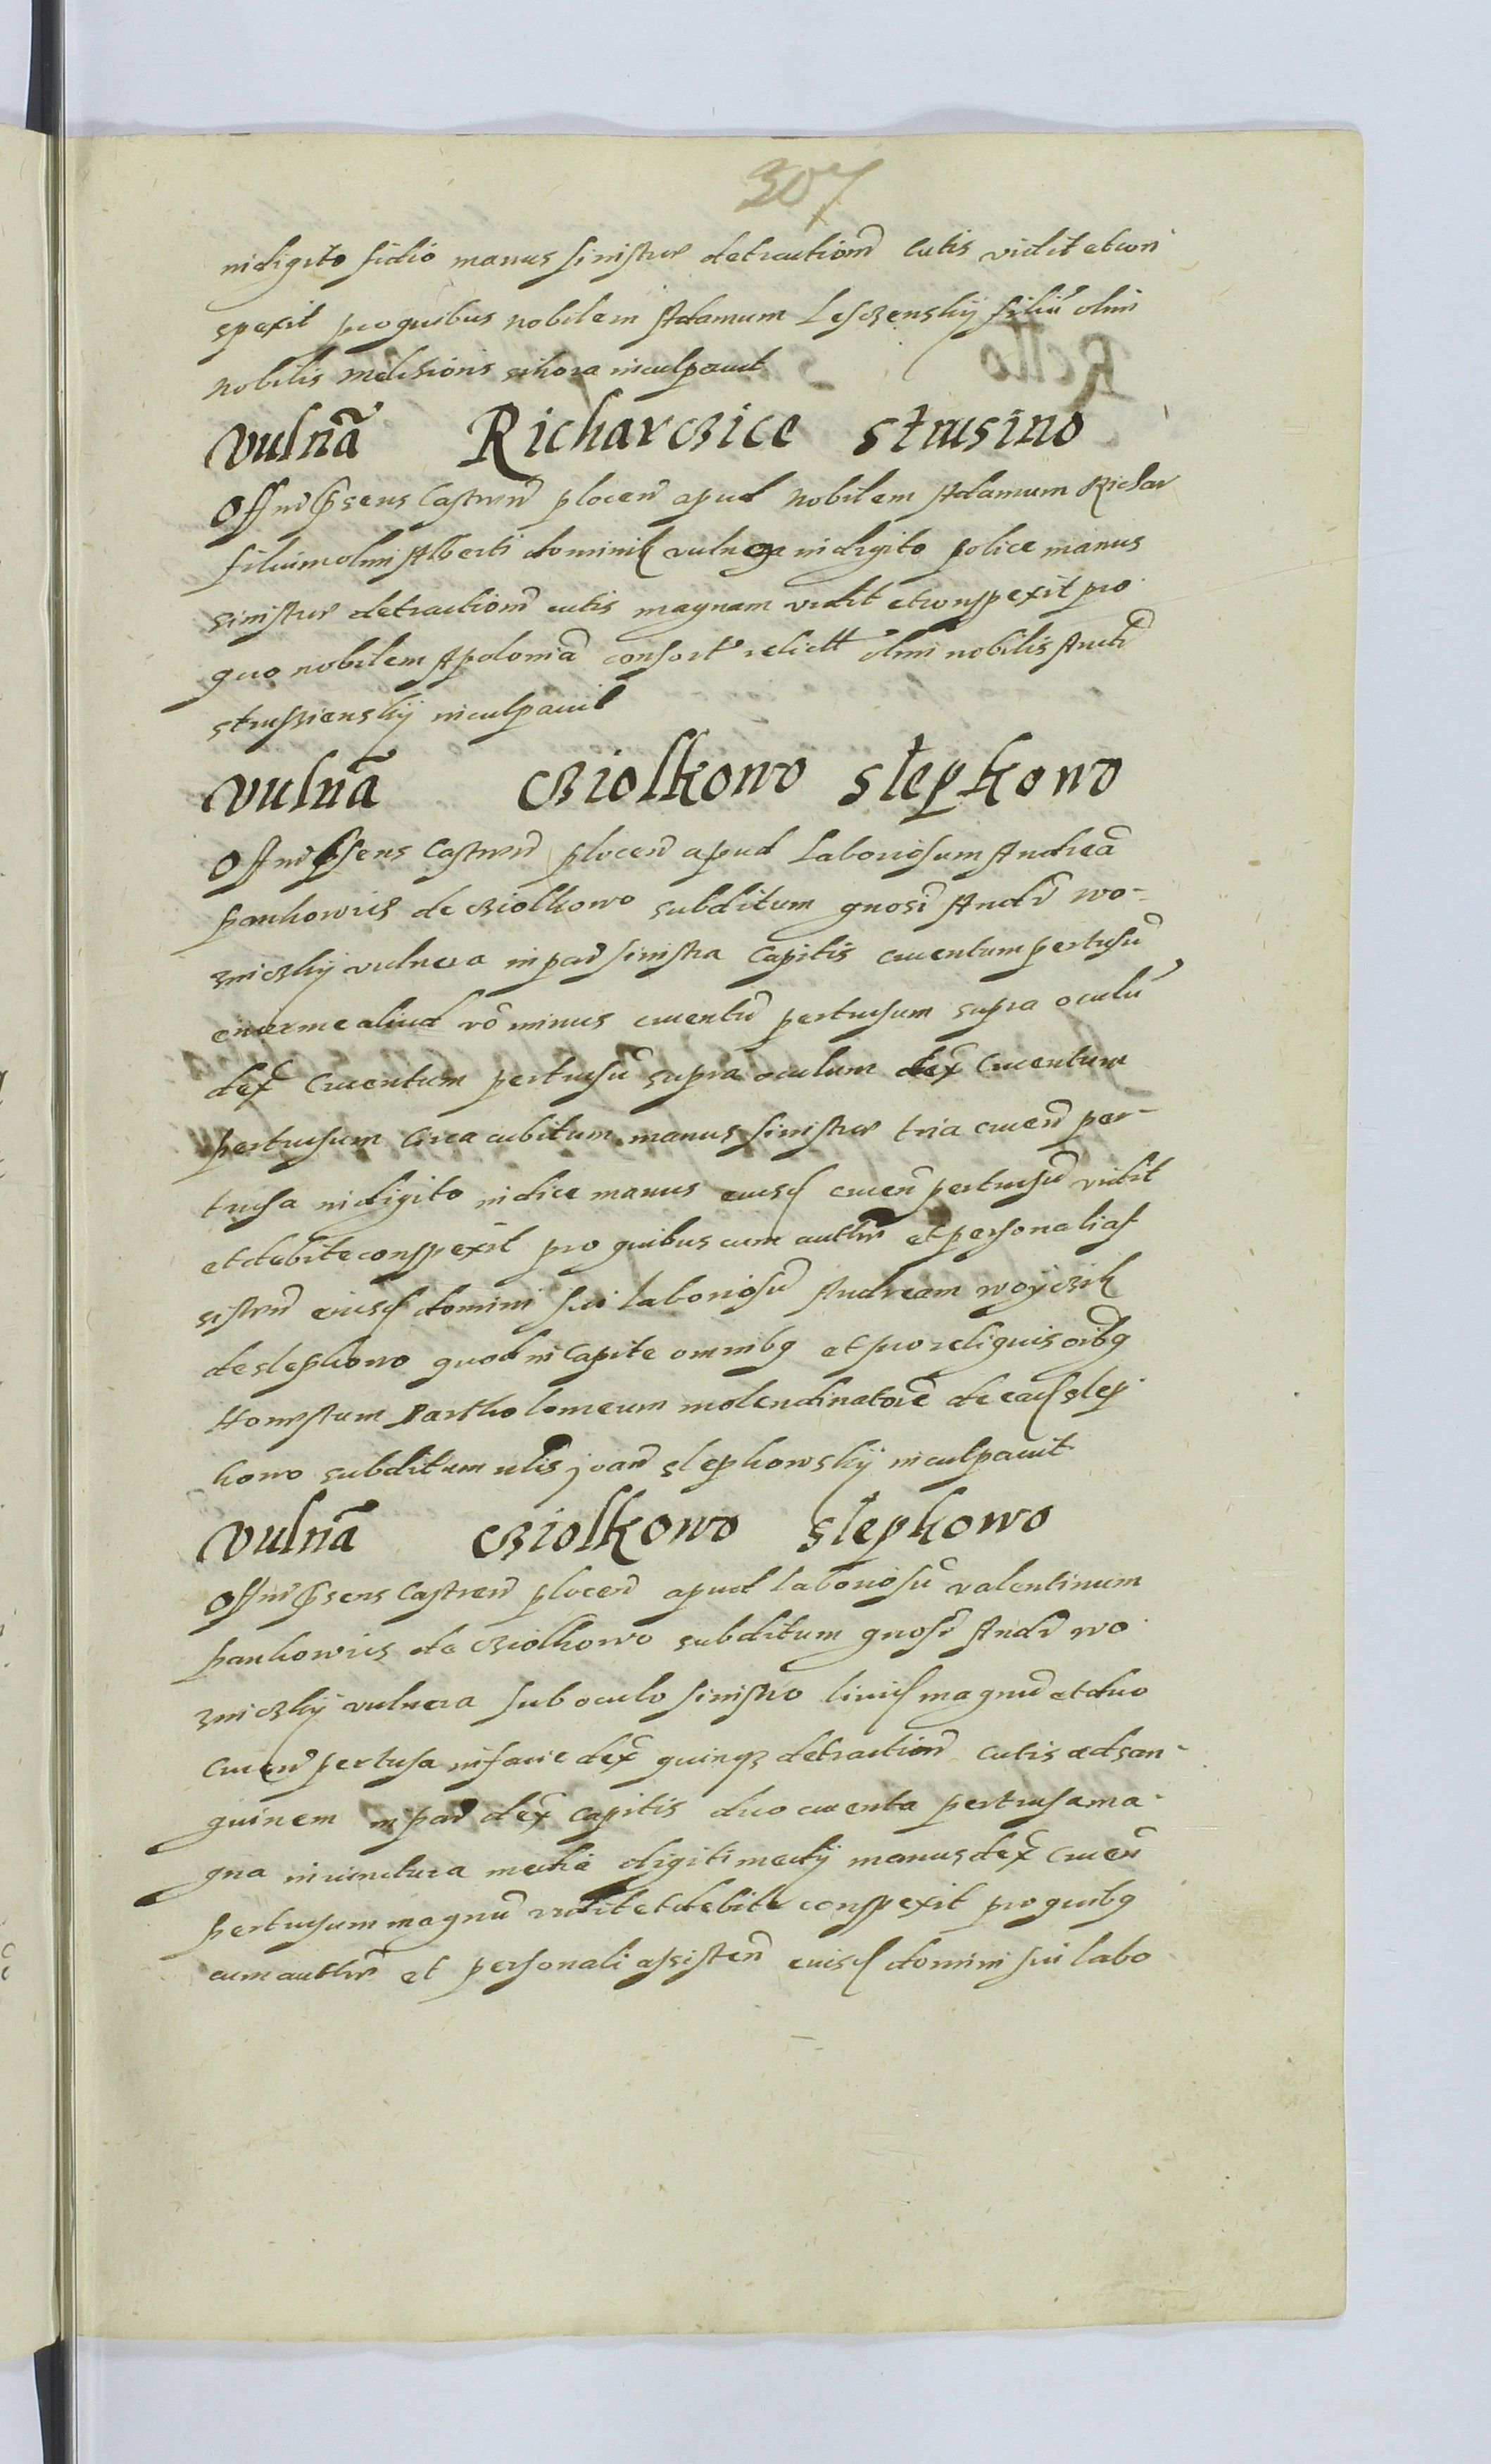 307
in digito sidio manus sinistre detractionē cutis vidit et con
spexit pro quibus nobilem Adamum Lesczenskÿ filiū olim
nobilis inculpauit
Vulnā Richarczice Strusino
Offm p̃sens Castren̄ plocen̄ apud nobilem Adamum Richar
filium olim Alberti vulnera in digito police manus
sinistre detractionē cutis magnam vidit et conspexit pro
quo nobilem Apoloniā consort relictā olim nobilis Andr̄
struszienskÿ inculpauit
Vulnā Cziolkowo Slepkowo
Offm p̃sens Castren̄ plocen̄ apud Laboriosum Andreā
pankowicz de Cziolkowo subditum gnosi Andr̄ wo-
zniczkÿ vulnera in par̄ sinistra Capitis cruentum pertusū
enorme aliud vō minus cruentū pertusum supra oculū
dex̄ Cruentum pertusū supra oculum dex̄ Cruentum
pertusum Circa cubitum manus sinistre tria cruen̄ per-
tusa in digito indice manus eiusd cruen̄ pertusū vidit
et debite conspexit pro quibus cum auttē et personali as
sisten̄ eiusd domini sui Laboriosū Andream woÿczik
de slepkowo quod in Capite omnibq et pro reliquis oībq
Honestum Bartholomeum molendinatorē de ead slep
kowo subditum nlis joan̄ slepkowskÿ inculpauit
Vulnā Cziolkowo Slepkowo
Offm p̃sens Castren̄ plocen̄ apud laboriosū valentinum
pankowicz de Cziolkowo subditum gnosi Andr̄ wo
zniczkÿ vulnera sub oculo sinistro liuid magnū et duo
Cruen̄ pertusa in facie dex̄ quinqz detractionē cutis ad san-
guinem in par̄ dex̄ Capitis duo cruenta pertusa ma-
gna in iunctura media digiti medÿ manus dex̄ Cruen̄
pertusum magnū vidit et debite conspexit pro quibq
cum auttē et personali assisten̄ eiusd domini sui labo